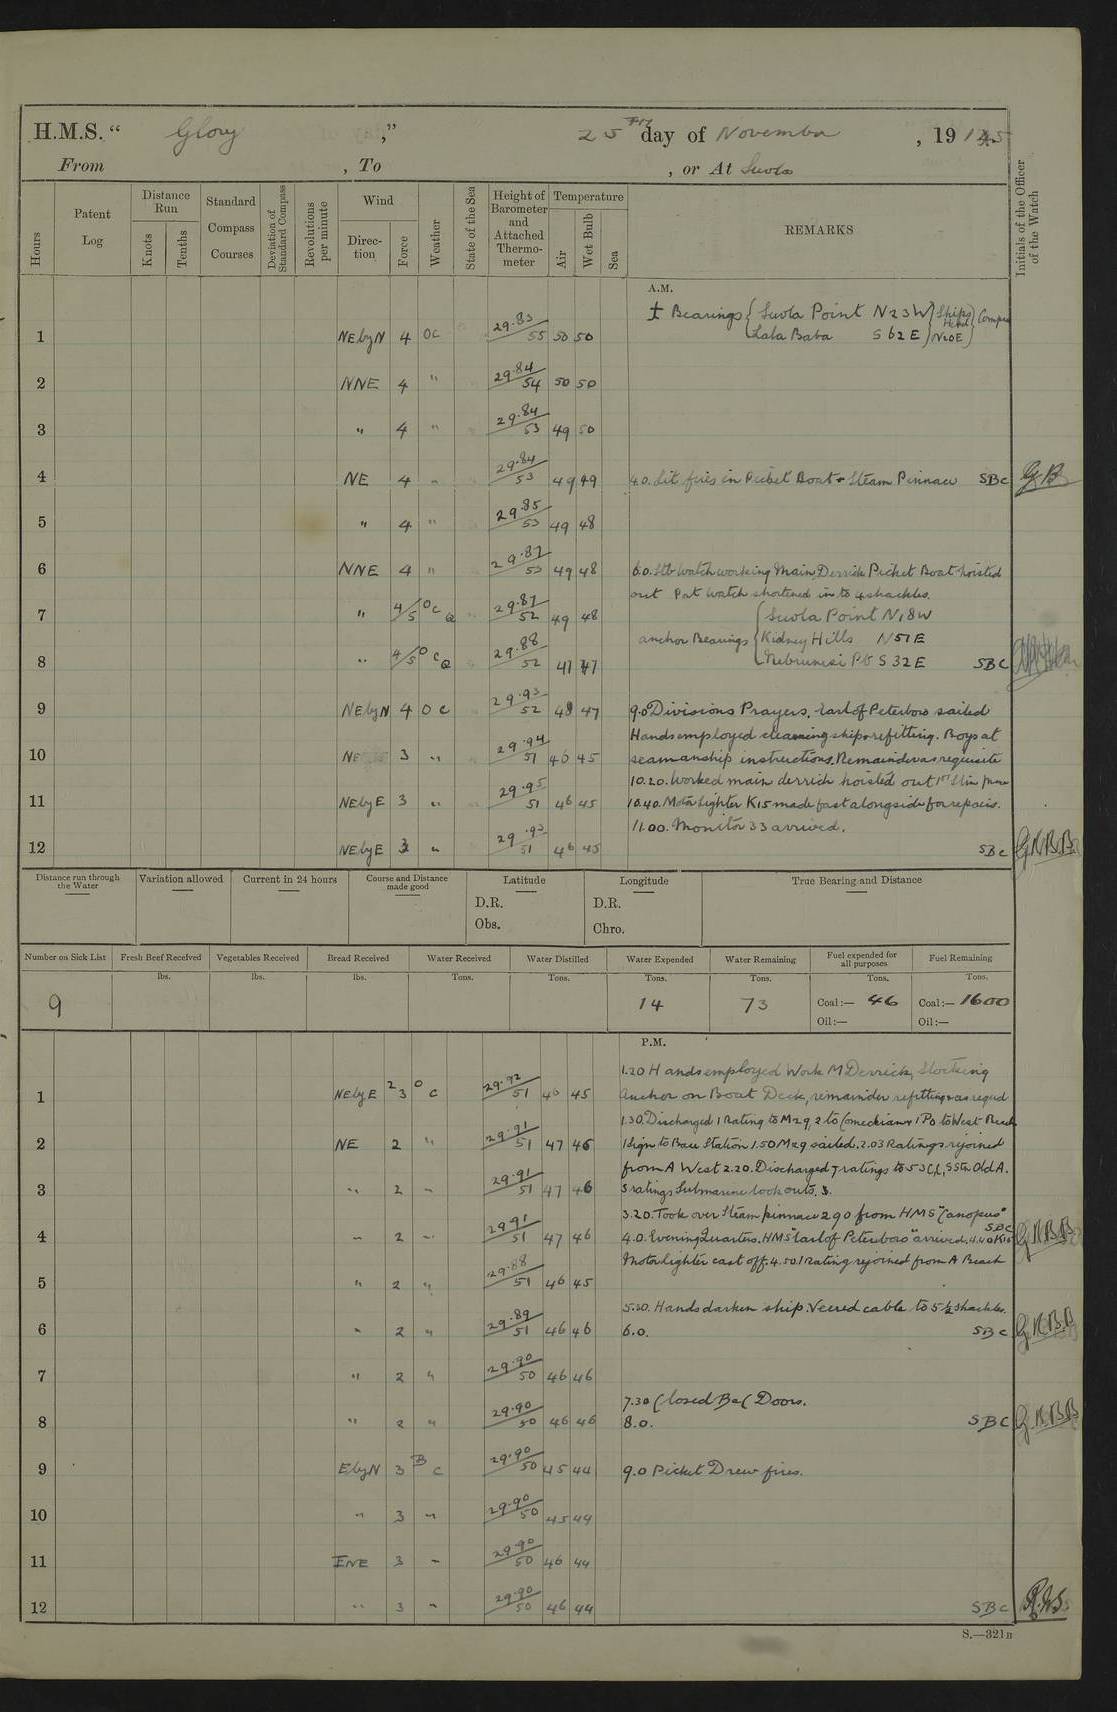 H.M.S. “ Glory ,” 25th day of November , 19 15
From , To , or At Suvla
Hours
Patent Log
Distance Run
Knots
Tenths
Standard Compass Courses
Deviation of Standard Compass
Revolutions per minute
Wind
Direction
Force
Weather
State of the Sea
Height of Barometer and Attached Thermometer
Temperature
Air
Wet Bulb
Sea
REMARKS
Initials of the Officer of the Watch
A.M.
Bearings { Suvla Point N23W } Ships Head } Compass
Lala Baba S62E } N20E
1 NEbyN 4 OC 29.83/55 50 50
2 NNE 4 " 29.84/54 50 50
3 " 4 " 29.84/53 49 50
4 NE 4 " 29.84/53 49 49 4.0. Lit fires in Picket Boat + Steam Pinnace SBC
5 " 4 " 29.85/53 49 48
6 NNE 4 " 29.87/53 49 48 6.0. Stb Watch working Main Derrick Picket Boat hoisted
out Port watch shortened in to 4 shackles.
7 " 4/5 OC Q 29.87/52 49 48 { Suvla Point N18W
anchor Bearings { Kidney Hills N51E
8 " 4/5 OC Q 29.88/52 47 47 { Nebrunesi Pt S32E SBC
9 NEbyN 4 OC 29.93/52 48 47 9.0 Divisions Prayers. Earl of Peterboro sailed
Hands employed cleaning ship & refitting. Boys at
10 NE 3 " 29.94/51 46 45 seamanship instructions. Remainder as requisite
10.20. Worked main derrick hoisted out 1st Stm Pinn
11 NEbyE 3 " 29.95/51 46 45 10.40. Motor Lighter K15 made fast alongside for repairs.
11.00. Monitor 33 arrived.
12 NEbyE 3 " 29.93/51 46 45 SBC GHBB
Distance run through the Water
Variation allowed
Current in 24 hours
Course and Distance made good
Latitude
Longitude
True Bearing and Distance
D.R.
Obs.
D.R.
Chro.
Number on Sick List
Fresh Beef Received
Vegetables Received
Bread Received
Water Received
Water Distilled
Water Expended
Water Remaining
Fuel expended for all purposes
Fuel Remaining
lbs. lbs. lbs. Tons. Tons. Tons. Tons. Tons. Tons.
9 14 73 Coal:— 46 Coal:— 1600
Oil:— Oil:—
P.M.
1.20 Hands employed Work M Derrick, Stocking
1 NEbyE 2 3 OC 29.92/51 46 45 Anchor on Boat Deck, remainder refitting as requd
1.30. Discharged 1 Rating to M29, 2 to 1 PO to West Beach
2 NE 2 " 29.91/51 47 46 1 Sign to Base Station 1.50 M29 sailed. 2.03 Ratings rejoined
from A West 2.20. Discharged 7 ratings to Old A.
3 " 2 " 29.91/51 47 46 5 ratings Submarine look outs.
3.20. Took over Steam pinnace 290 from HMS "Canopus"
SBC
4 " 2 " 29.91/51 47 46 4.0. Evening Quarters. HMS "Earl of Peterboro" arrived. 4.40 K15
Motor lighter cast off. 4.50. 1 Rating rejoined from A Beach
5 " 2 " 29.88/51 46 45
5.30. Hands darken ship. Veered cable to 5½ shackles.
6 " 2 " 29.89/51 46 46 6.0. SBC
7 " 2 " 29.90/50 46 46
7.30 Closed B & C Doors.
8 " 2 " 29.90/50 46 46 8.0. SBC
9 EbyN 3 BC 29.90/50 45 44 9.0 Picket Drew fires.
10 " 3 " 29.90/50 45 44
11 ENE 3 " 29.90/50 46 44
12 " 3 " 29.90/50 46 44 SBC
S.—321B